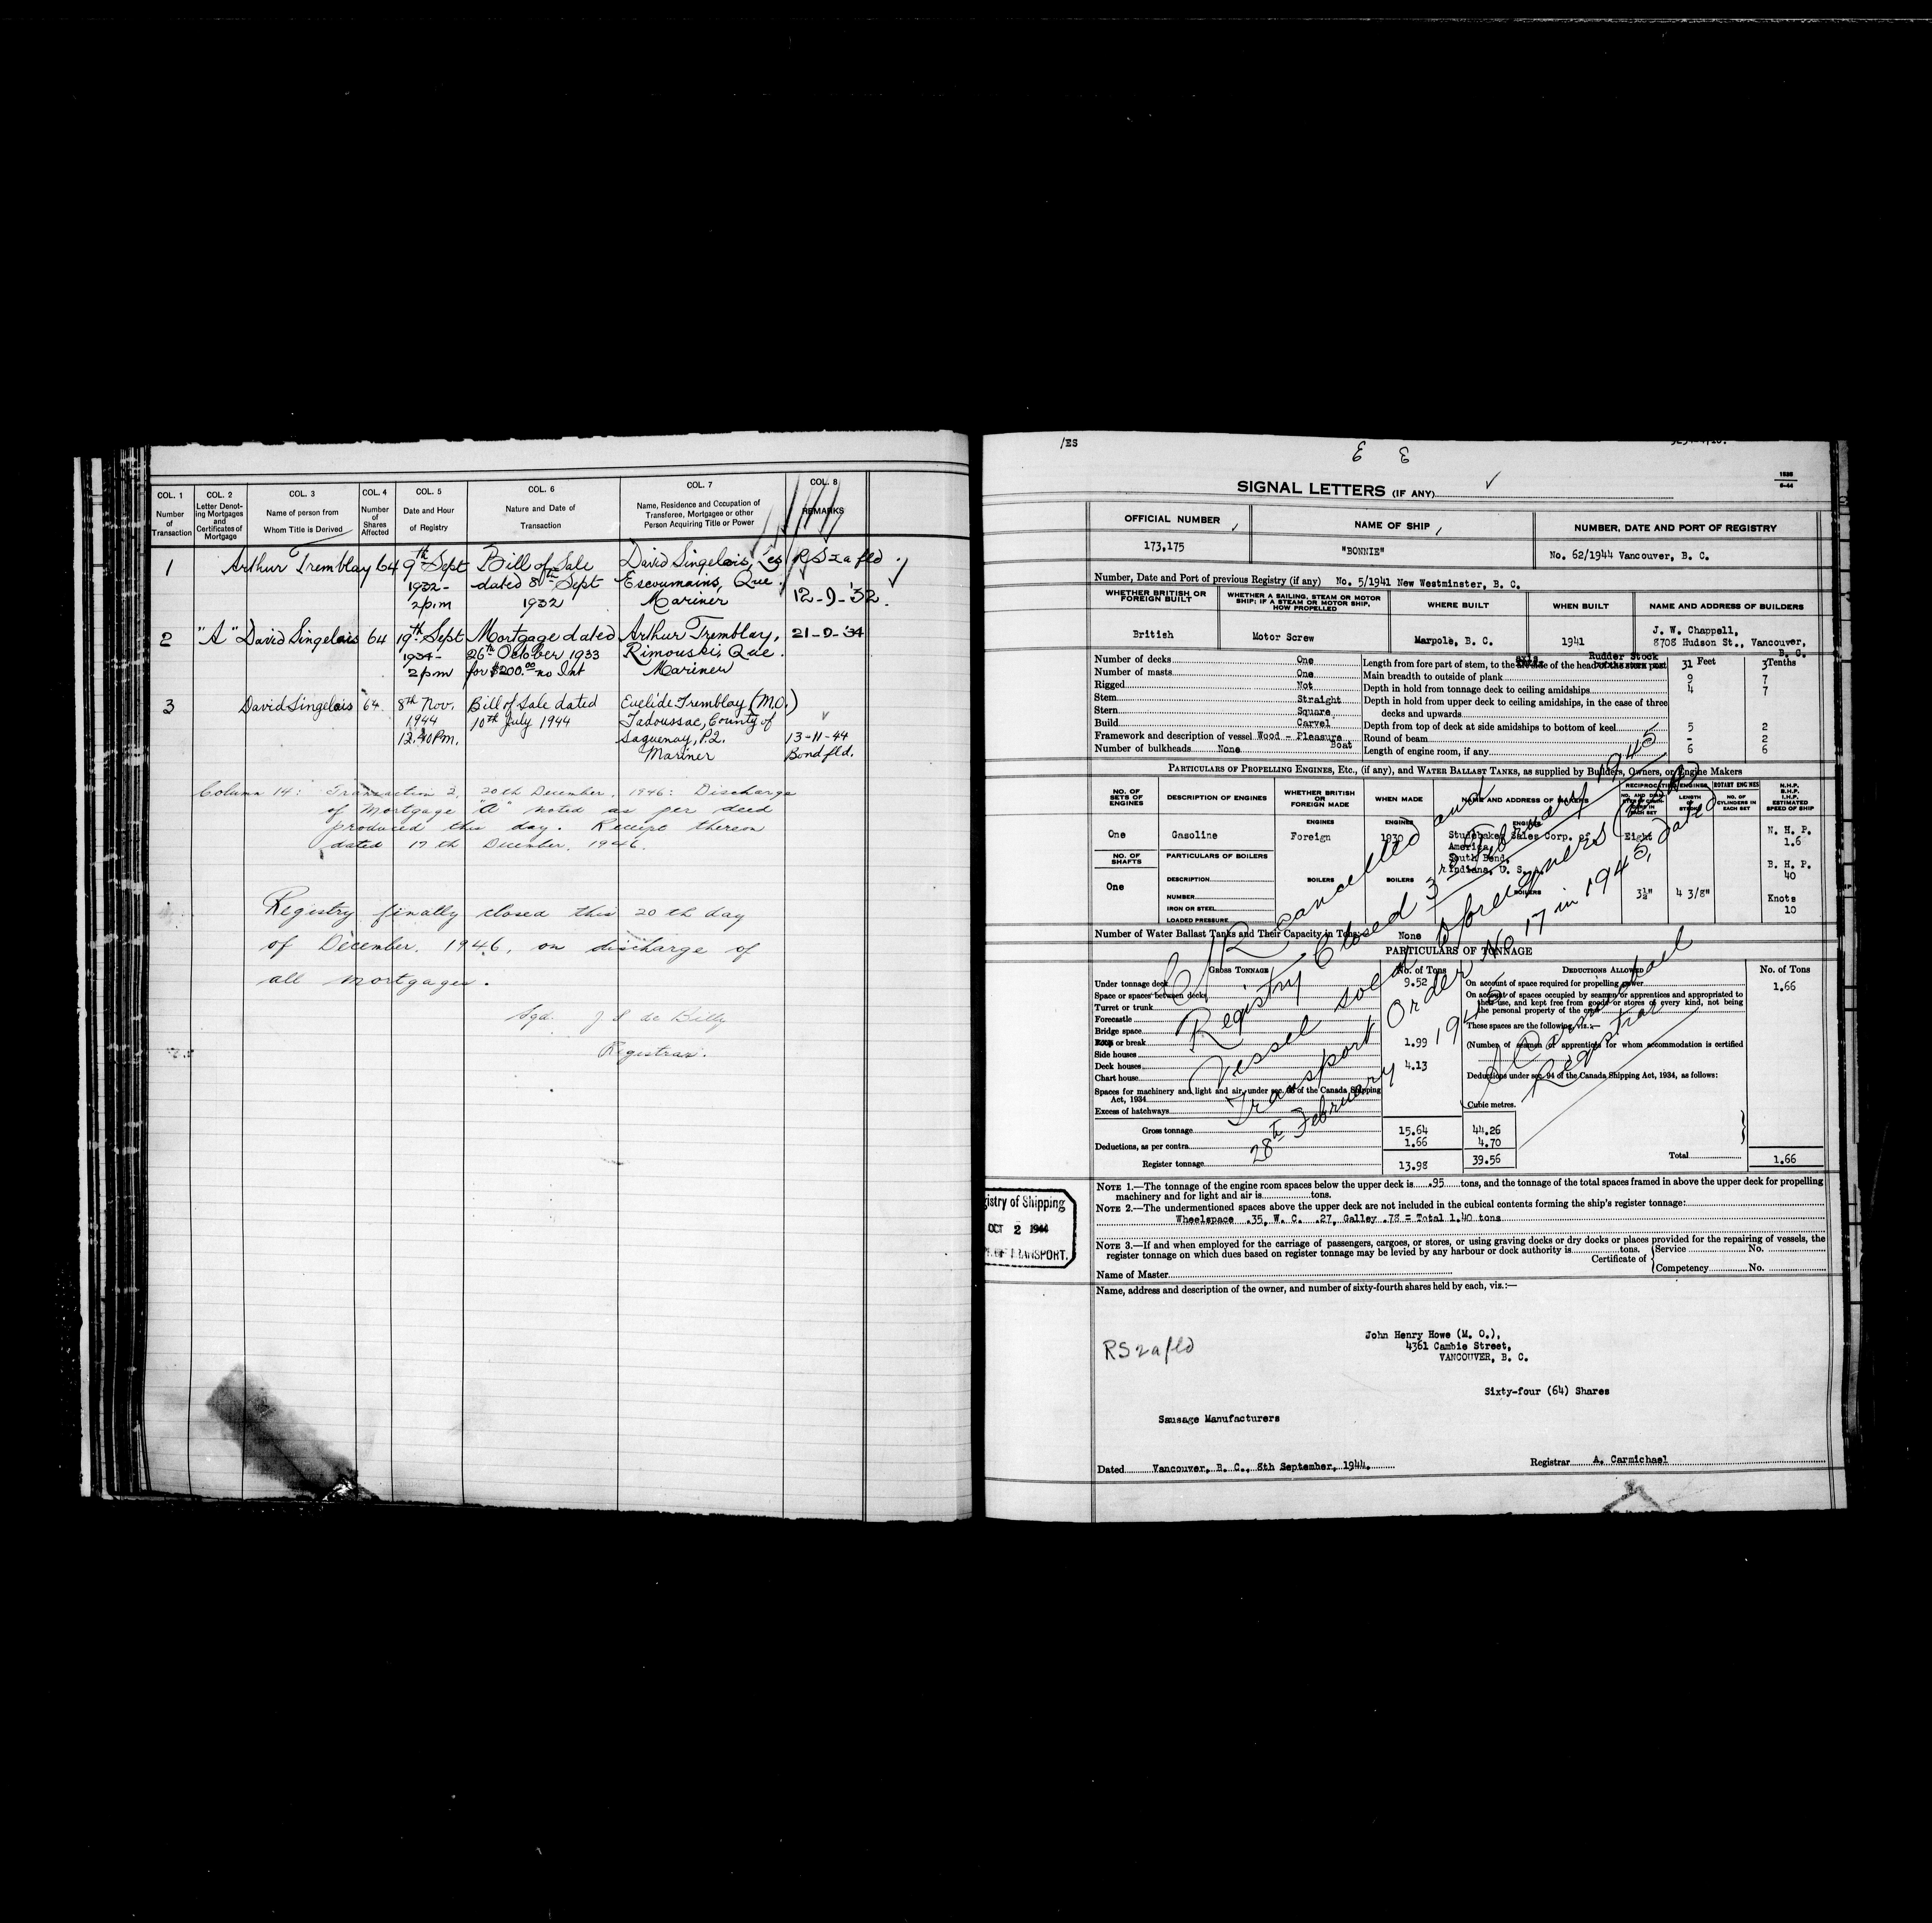 COL. 1
Number
of
Transaction
COL. 2
Letter Denot-
ing Mortgages
and
Certificates of
Mortgage
COL. 3
Name of person from
Whom Title is Derived
COL. 4
Number
of
Shares
Affected
COL. 5
Date and Hour
of Registry
COL. 6
Nature and Date of
Transaction
COL. 7
Name, Residence and Occupation of
Transferee, Mortgagee or other
Person Acquiring Title or Power
COL. 8
REMARKS
1 Arthur Tremblay 64 9th Sept Bill of Sale David Singelais, Les RS2a fld
1932- dated 8th Sept Escoumins, Que.
2pm 1932 Mariner 12-9-'32.
2 "A" David Singelais 64 19th Sept Mortgage dated Arthur Tremblay, 21-9-'34
1934- 26th October 1933 Rimouski, Que.
2pm for $200.00 no Int Mariner
3 David Singelais 64 8th Nov. Bill of Sale dated Euclide Tremblay (M.O.)
1944 10th July 1944 Tadoussac, County of
12.40Pm. Saguenay, P.Q. 13-11-44
Mariner Bond fld.
Column 14: Transaction 2, 20th December, 1946: Discharge
of Mortgage "A" noted as per deed
produced this day. Receipt thereon
dated 17th December, 1946.
Registry finally closed this 20th day
of December, 1946, on discharge of
all mortgages.
Sgd. J S de Billy
Registrar.
/ES
SIGNAL LETTERS (IF ANY)
OFFICIAL NUMBER
NAME OF SHIP
NUMBER, DATE AND PORT OF REGISTRY
173,175
"BONNIE"
No. 62/1944 Vancouver, B. C.
Number, Date and Port of previous Registry (if any) No. 5/1941 New Westminster, B. C.
WHETHER BRITISH OR
FOREIGN BUILT
WHETHER A SAILING, STEAM OR MOTOR
SHIP; IF A STEAM OR MOTOR SHIP,
HOW PROPELLED
WHERE BUILT
WHEN BUILT
NAME AND ADDRESS OF BUILDERS
British
Motor Screw
Marpole, B. C.
1941
J. W. Chappell,
8708 Hudson St., Vancouver,
B. C.
Number of decks One
Number of masts One
Rigged Not
Stem Straight
Stern Square
Build Carvel
Framework and description of vessel Wood - Pleasure
Boat
Number of bulkheads None
axis Rudder Stock
Length from fore part of stem, to the aft side of the head of the stern post 31 Feet 3 Tenths
Main breadth to outside of plank 9 7
Depth in hold from tonnage deck to ceiling amidships 4 7
Depth in hold from upper deck to ceiling amidships, in the case of three
decks and upwards
Depth from top of deck at side amidships to bottom of keel 5 2
Round of beam - 2
Length of engine room, if any 6 6
PARTICULARS OF PROPELLING ENGINES, ETC., (if any), and WATER BALLAST TANKS, as supplied by Builders, Owners, or Engine Makers
NO. OF
SETS OF
ENGINES
DESCRIPTION OF ENGINES
WHETHER BRITISH
OR
FOREIGN MADE
WHEN MADE
NAME AND ADDRESS OF MAKERS
RECIPROCATING ENGINES
LENGTH
OF
STROKE
ROTARY ENGINES
NO. OF
CYLINDERS IN
EACH SET
N.H.P.
B.H.P.
I.H.P.
ESTIMATED
SPEED OF SHIP
ENGINES
ENGINES
ENGINES
One
Gasoline
Foreign
1930
Studebaker Sales Corp. of
America,
South Bend,
Indiana, U. S. A.
Eight
N. H. P.
1.6
NO. OF
SHAFTS
PARTICULARS OF BOILERS
B. H. P.
40
One
DESCRIPTION
NUMBER
IRON OR STEEL
LOADED PRESSURE
BOILERS
BOILERS
BOILERS
3½"
4 3/8"
Knots
10
Number of Water Ballast Tanks and Their Capacity in Tons None
PARTICULARS OF TONNAGE
GROSS TONNAGE
No. of Tons
Under tonnage deck 9.52
Space or spaces between decks
Turret or trunk
Forecastle
Bridge space
Poop or break 1.99
Side houses
Deck houses 4.13
Chart house
Spaces for machinery and light and air, under sec. of the Canada Shipping
Act, 1934
Excess of hatchways
Cubic metres.
Gross tonnage 15.64 44.26
Deductions, as per contra 1.66 4.70
Register tonnage 13.98 39.56
DEDUCTIONS ALLOWED
No. of Tons
On account of space required for propelling power 1.66
On account of spaces occupied by seamen or apprentices and appropriated to
their use, and kept free from goods or stores of every kind, not being
the personal property of the crew
These spaces are the following, viz.:—
(Number of seamen or apprentices for whom accommodation is certified
Deductions under sec. 94 of the Canada Shipping Act, 1934, as follows:
Total 1.66
C/R cancelled and
Registry Closed 3rd February 1945
Vessel sold foreigners
Transport Order No 17 in 1945, dated
28th February 1945
A Carmichael
Registrar
NOTE 1.—The tonnage of the engine room spaces below the upper deck is .95 tons, and the tonnage of the total spaces framed in above the upper deck for propelling
machinery and for light and air is tons.
NOTE 2.—The undermentioned spaces above the upper deck are not included in the cubical contents forming the ship's register tonnage:
Wheelspace .35, W. C. .27, Galley .78 = Total 1.40 tons
NOTE 3.—If and when employed for the carriage of passengers, cargoes, or stores, or using graving docks or dry docks or places provided for the repairing of vessels, the
register tonnage on which dues based on register tonnage may be levied by any harbour or dock authority is tons.
Certificate of {Service No.
Competency No.
Name of Master
gistry of Shipping
OCT 2 1944
OF TRANSPORT.
Name, address and description of the owner, and number of sixty-fourth shares held by each, viz.:—
RS2a fld
John Henry Howe (M. O.),
4361 Cambie Street,
VANCOUVER, B. C.
Sixty-four (64) Shares
Sausage Manufacturers
Dated Vancouver, B. C., 8th September, 1944.
Registrar A. Carmichael